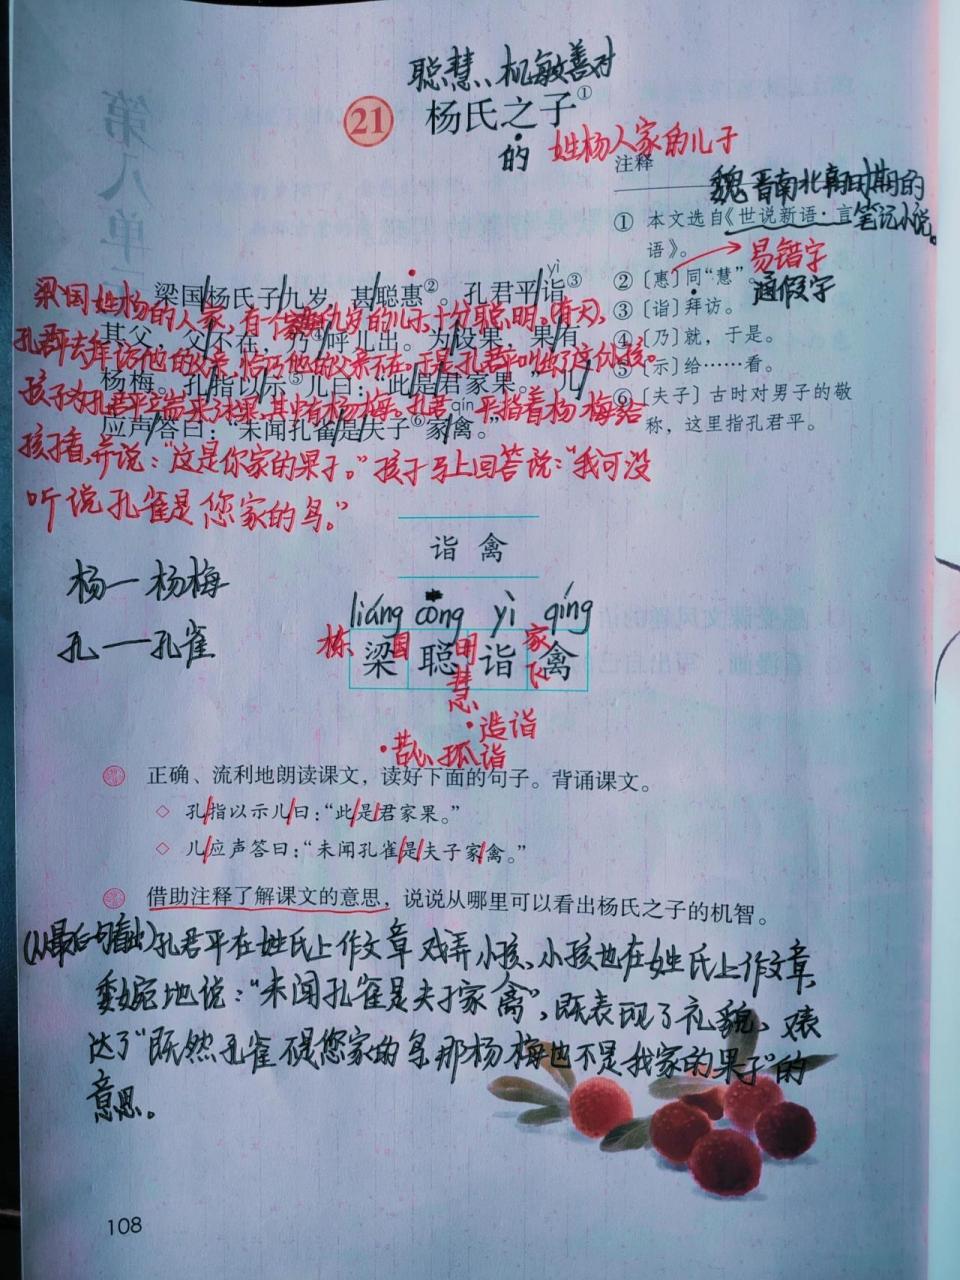 聪慧、机敏善对
21 杨氏之子①
的 姓杨人家的儿子
注释
魏晋南北朝时期的
① 本文选自《世说新语·言 笔记小说。
语》。 易错字
② 〔惠〕同“慧”。
通假字
③ 〔诣〕拜访。
④ 〔乃〕就，于是。
⑤ 〔示〕给……看。
⑥ 〔夫子〕古时对男子的敬
称，这里指孔君平。
第八单元
yì
梁国/杨氏子/九岁，甚/聪惠②。孔君平/诣③
梁国姓杨的人家，有个九岁的儿子，十分聪明。(有天)，
其父，父/不在，乃④/呼儿出。为/设果，果/有
孔君平去拜访他的父亲，恰巧他的父亲不在。于是孔君平叫出了这个小孩。
杨梅。孔/指以/示⑤儿曰：“此/是/君家果。”儿/
孩子为孔君平端来了水果，其中有杨梅。孔君平指着杨梅给
qín
应声/答曰：“未闻孔雀/是/夫子⑥家/禽。”
孩子看，并说：“这是你家的果子。”孩子马上回答说：“我可没
听说孔雀是您家的鸟。”
诣 禽
杨一杨梅
孔一孔雀
liáng cōng yì qíng
栋 国 明 家
梁 聪 诣 禽
慧 飞
·造诣
·苦心孤诣
正确、流利地朗读课文，读好下面的句子。背诵课文。
◇ 孔/指以示儿/曰：“此/是/君家果。”
◇ 儿/应声答曰：“未闻孔雀/是/夫子家/禽。”
借助注释了解课文的意思，说说从哪里可以看出杨氏之子的机智。
(从最后一句看出)孔君平在姓氏上作文章戏弄小孩、小孩也在姓氏上作文章，
委婉地说：“未闻孔雀是夫子家禽”，既表现了礼貌、又表
达了“既然孔雀不是您家的鸟那杨梅也不是我家的果子”的
意思。
108